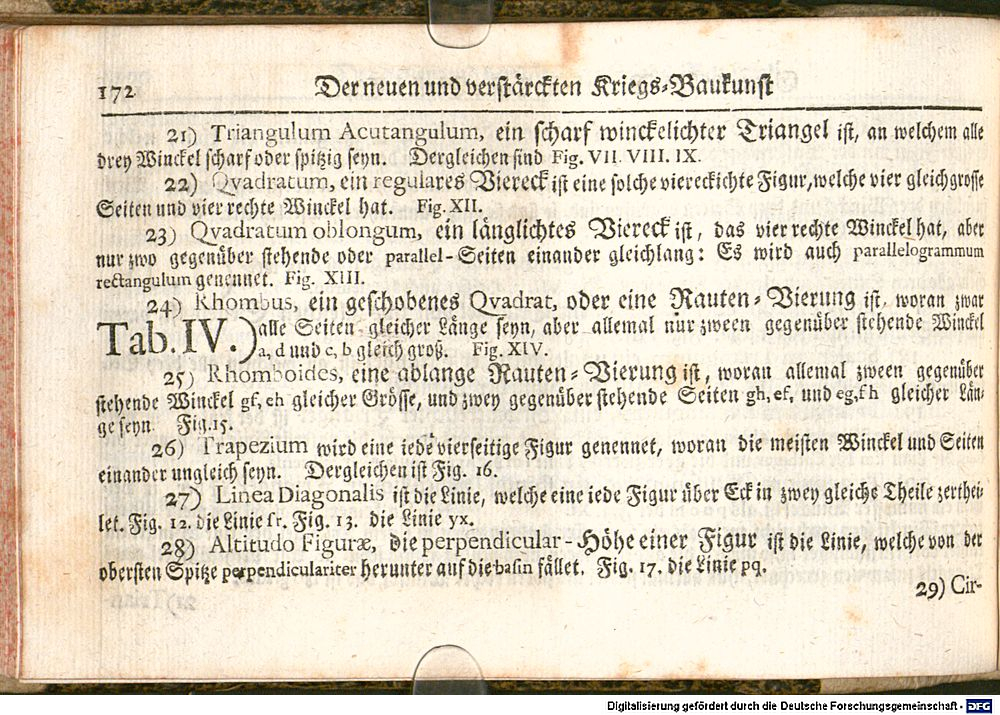 172
Der neuen und verstärckten Kriegs-Baukunst
21) Triangulum Acutangulum, ein scharf winckelichter Triangel ist, an welchem alle
drey Winckel scharf oder spitzig seyn. Dergleichen sind Fig. VII. VIII. IX.
22) Qvadratum, ein regulares Viereck ist eine solche viereckichte Figur, welche vier gleichgrosse
Seiten und vier rechte Winckel hat. Fig. XII.
23) Qvadratum oblongum, ein länglichtes Viereck ist, das vier rechte Winckel hat, aber
nur zwo gegenüber stehende oder parallel-Seiten einander gleichlang: Es wird auch parallelogrammum
rectangulum genennet. Fig. XIII.
24) Rhombus, ein geschobenes Qvadrat, oder eine Rauten-Vierung ist, woran zwar
Tab. IV.) alle Seiten gleicher Länge seyn, aber allemal nur zween gegenüber stehende Winckel
a, d und c, b gleich groß. Fig. XIV.
25) Rhomboides, eine ablange Rauten-Vierung ist, woran allemal zween gegenüber
stehende Winckel gf, eh gleicher Grösse, und zwey gegenüber stehende Seiten gh, ef, und eg, fh gleicher Län-
ge seyn. Fig. 15.
26) Trapezium wird eine iede vierseitige Figur genennet, woran die meisten Winckel und Seiten
einander ungleich seyn. Dergleichen ist Fig. 16.
27) Linea Diagonalis ist die Linie, welche eine iede Figur über Eck in zwey gleiche Theile zerthei-
let. Fig. 12. die Linie sr. Fig. 13. die Linie yx.
28) Altitudo Figuræ, die perpendicular-Höhe einer Figur ist die Linie, welche von der
obersten Spitze perpendiculariter herunter auf die basin fället. Fig. 17. die Linie pq.
29) Cir-
Digitalisierung gefördert durch die Deutsche Forschungsgemeinschaft - DFG